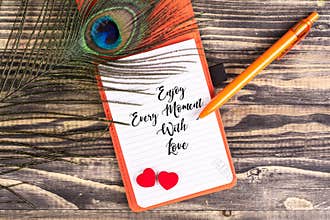 Enjoy
Every Moment
With
Love